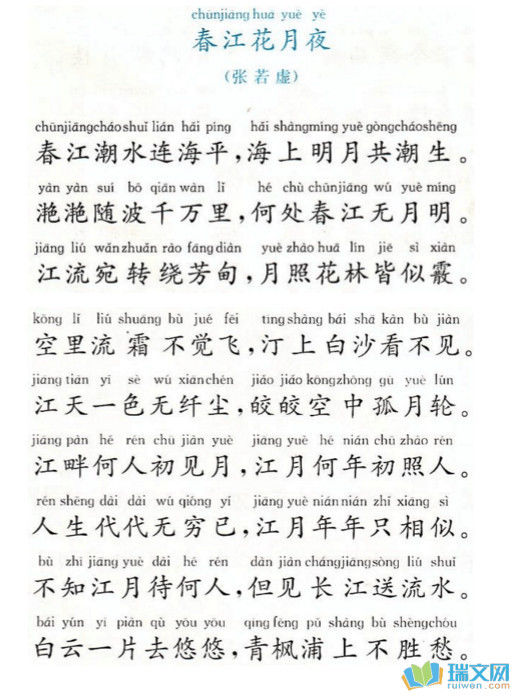 chūnjiāng huā yuè yè
春江花月夜
(张若虚)
chūnjiāngcháoshuǐ lián hǎi píng hǎi shàngmíng yuè gòngcháoshēng
春江潮水连海平,海上明月共潮生。
yàn yàn suí bō qiān wàn lǐ hé chù chūnjiāng wú yuè míng
滟滟随波千万里,何处春江无月明。
jiāng liú wǎnzhuǎn rào fāngdiàn yuè zhào huā lín jiē sì xiàn
江流宛转绕芳甸,月照花林皆似霰。
kōng lǐ liú shuāng bù jué fēi tīngshàng bái shā kàn bù jiàn
空里流霜不觉飞,汀上白沙看不见。
jiāng tiān yí sè wú xiānchén jiǎo jiǎo kōngzhōng gū yuè lún
江天一色无纤尘,皎皎空中孤月轮。
jiāng pàn hé rén chū jiàn yuè jiāng yuè hé nián chū zhào rén
江畔何人初见月,江月何年初照人。
rén shēng dài dài wú qióng yǐ jiāng yuè nián nián zhǐ xiāng sì
人生代代无穷已,江月年年只相似。
bù zhī jiāng yuè dài hé rén dàn jiàn chángjiāngsòng liú shuǐ
不知江月待何人,但见长江送流水。
bái yún yí piàn qù yōu yōu qīng fēng pǔ shàng bù shèngchóu
白云一片去悠悠,青枫浦上不胜愁。
瑞文网
ruiwen.com